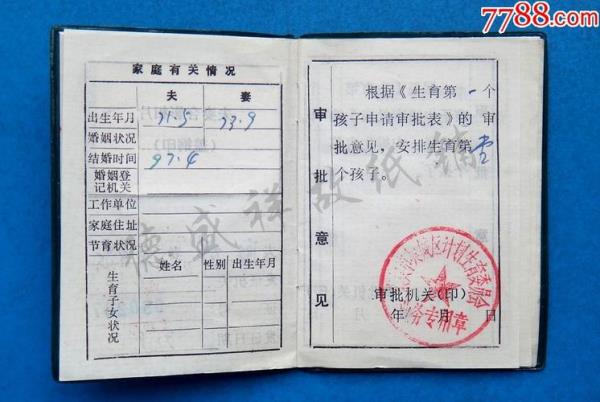 7788.com
家庭有关情况
夫 妻
出生年月 71.5 73.9
婚姻状况
结婚时间 97.4
婚姻登记机关
工作单位
家庭住址
节育状况
生育子女状况 姓名 性别 出生年月
德盛祥故纸铺
审批意见
根据《生育第一个
孩子申请审批表》的审
批意见，安排生育第壹
个孩子。
审批机关（印）
年 月 日
区计划生育委员会
专用章